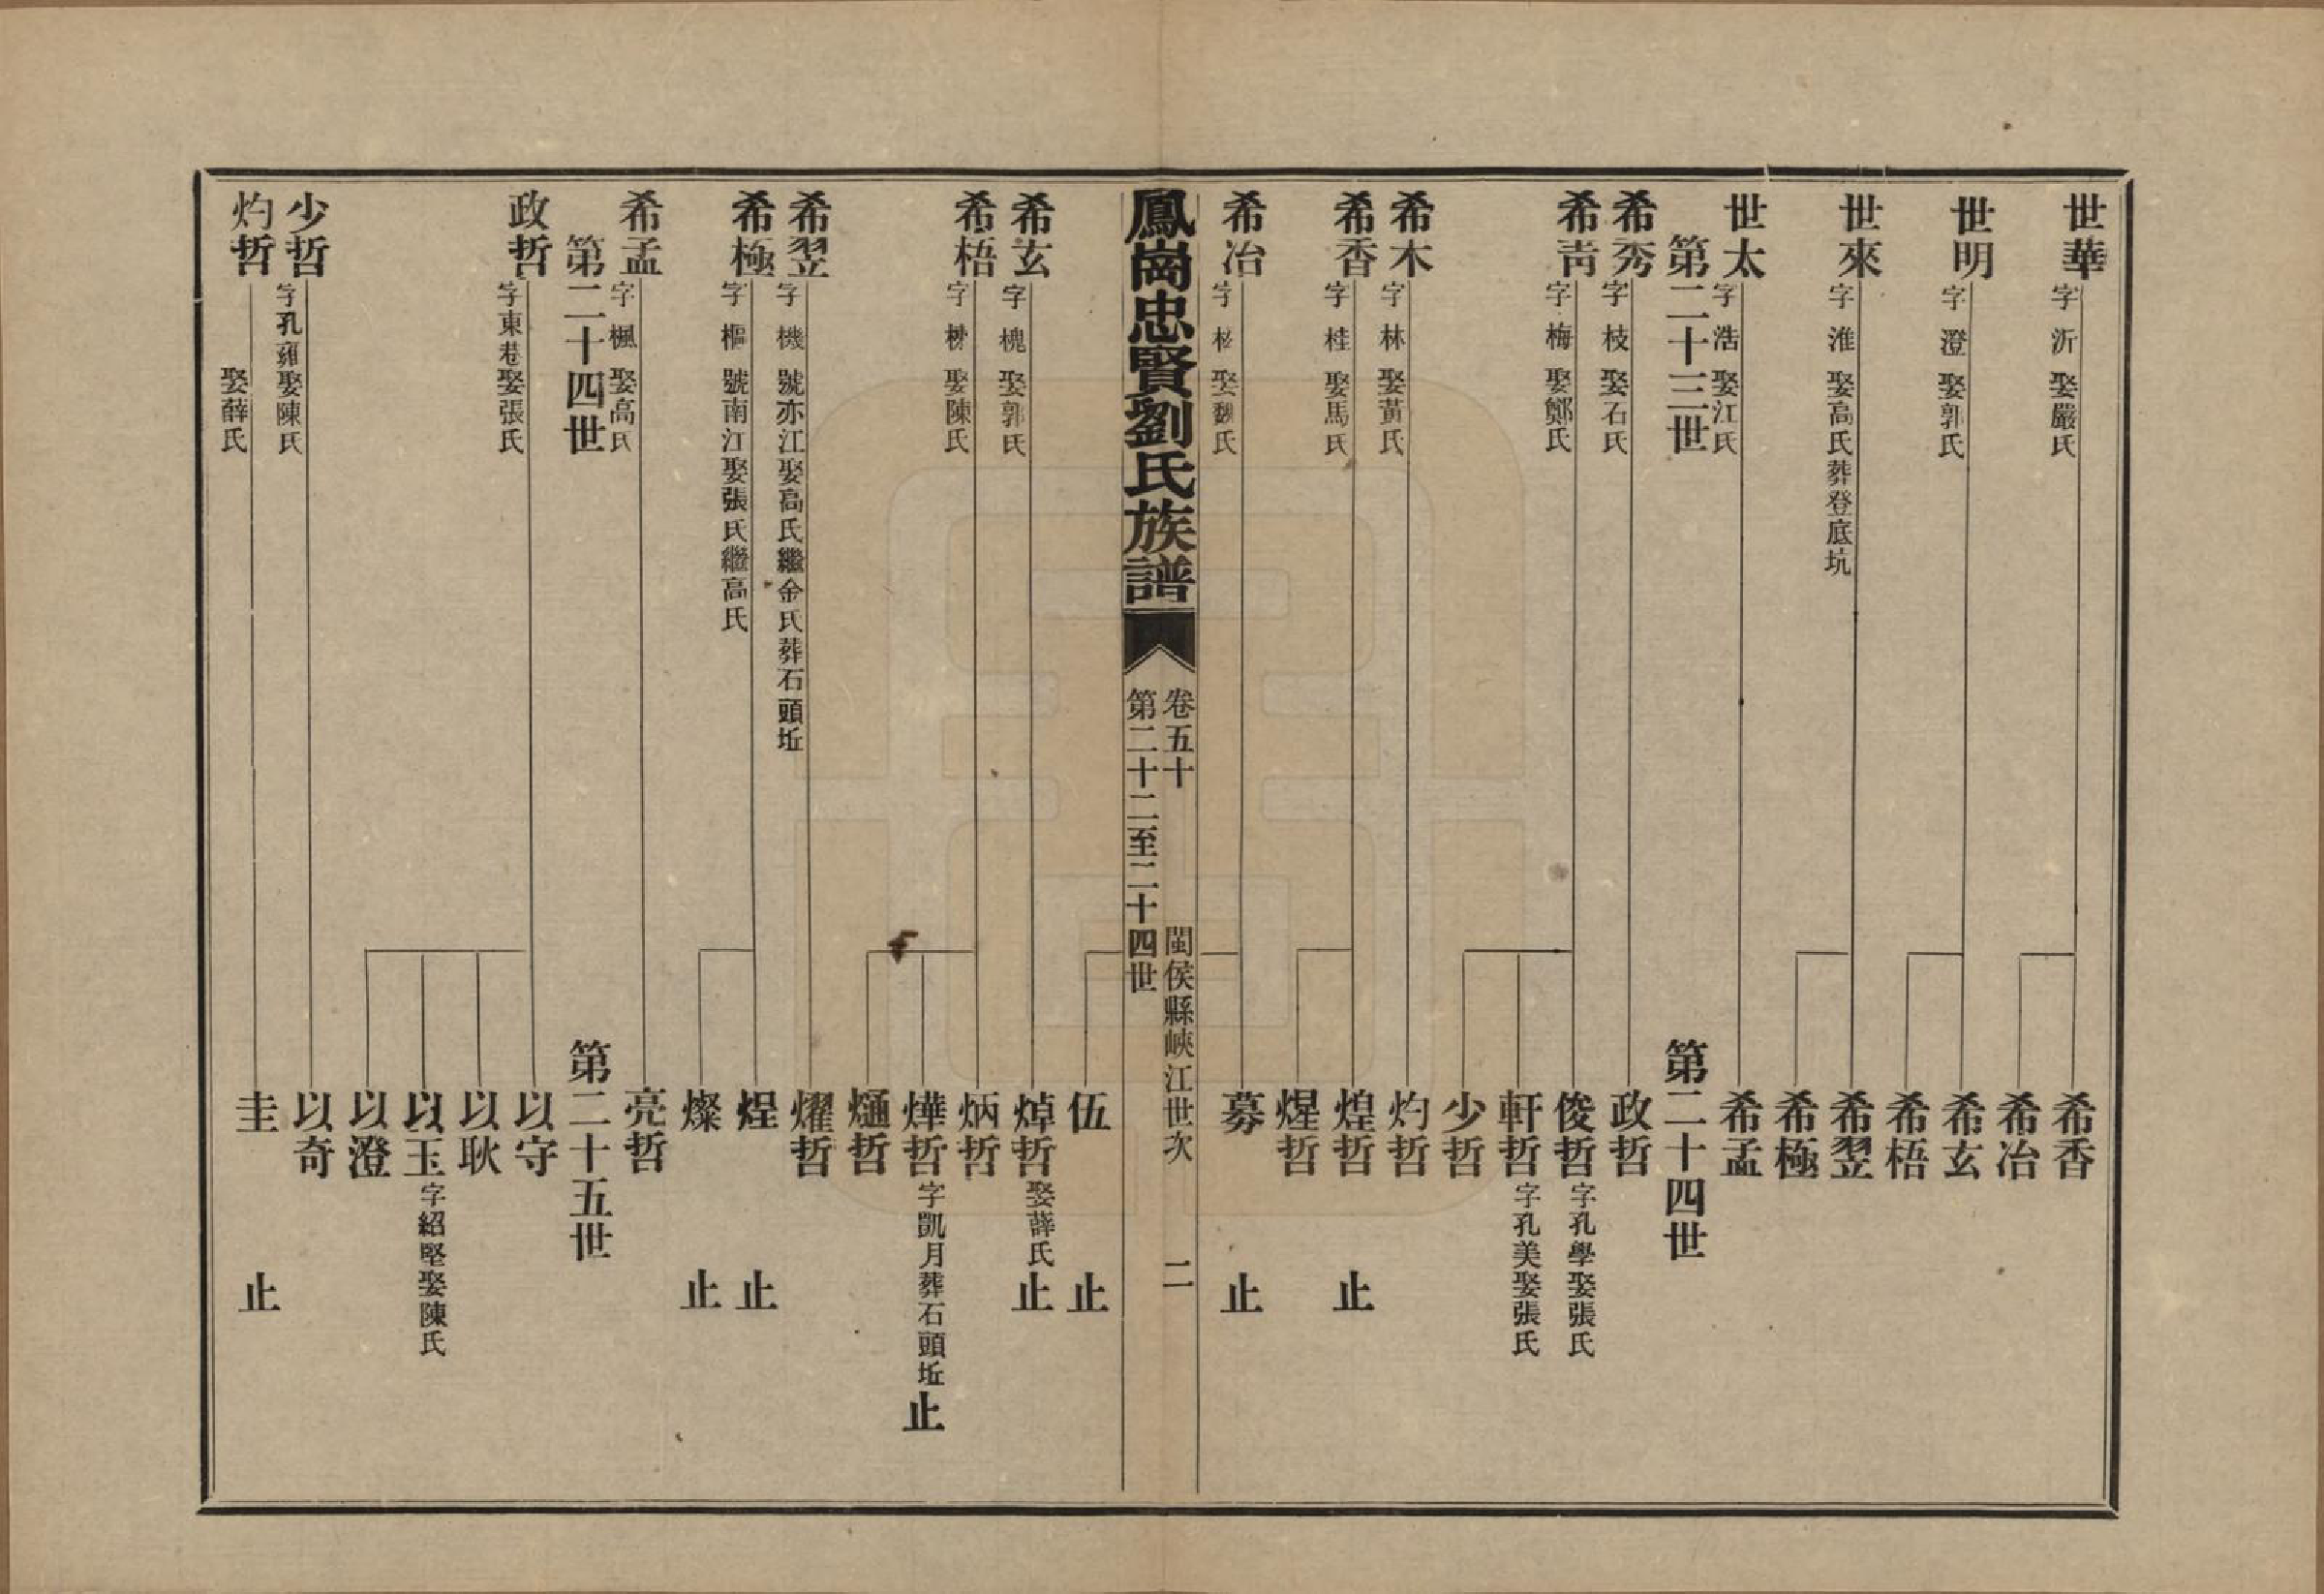 世華
字 沂 娶嚴氏
希香
希冶
世明
字 澄 娶郭氏
希玄
希梧
世來
字 淮 娶高氏葬登底坑
希翌
希極
世太
字 浩 娶江氏
希孟
第二十三世
第二十四世
希秀
字 枝 娶石氏
政哲
希青
字 梅 娶鄭氏
俊哲 字孔學娶張氏
軒哲 字孔美娶張氏
少哲
希木
字 林 娶黃氏
灼哲
希香
字 桂 娶馬氏
煌哲 止
煋哲
希冶
字 娶魏氏
募 止
鳳崗忠賢劉氏族譜
卷五十 閩侯縣峽江世次 二
第二十二至二十四世
伍 止
希玄
字 槐 娶郭氏
焯哲 娶薛氏 止
希梧
字 娶陳氏
炳哲
燁哲 字凱月葬石頭坵 止
熥哲
希翌
字 機 號亦江娶高氏繼金氏葬石頭坵
燿哲
希極
字 樞 號南江娶張氏繼高氏
煌 止
燦 止
希孟
字 楓 娶高氏
亮哲
第二十四世
第二十五世
政哲
字東巷娶張氏
以守
以耿
以玉 字紹堅娶陳氏
以澄
少哲
字孔雍娶陳氏
以奇
灼哲
娶薛氏
圭 止